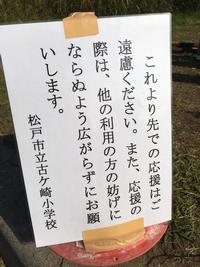 これより先での応援はご
遠慮ください。また、応援の
際は、他の利用の方の妨げに
ならぬよう広がらずにお願
いします。
松戸市立古ケ崎小学校